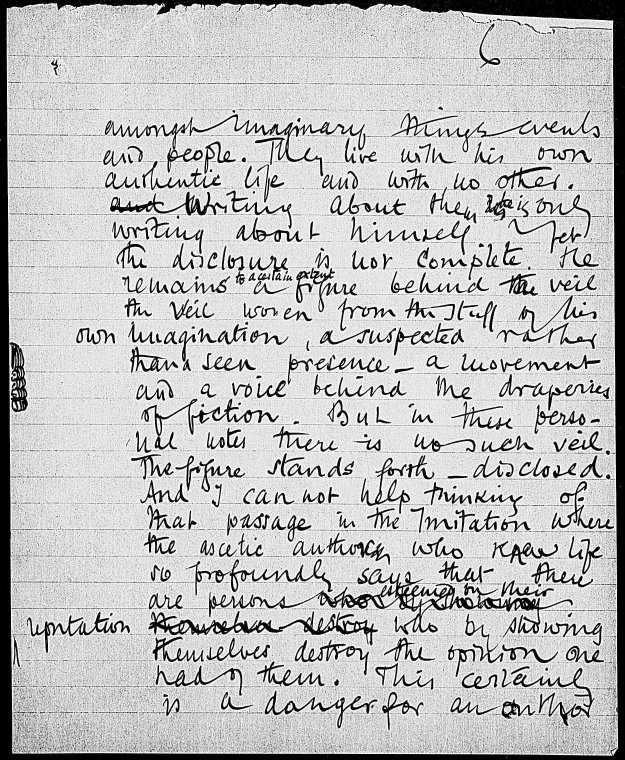 6
amongst imaginary things events
and people. They live with his own
authentic life and with no other.
and Writing about them he is only
writing about himself. Yet
the disclosure is not complete. He
remains to a certain extent a figure behind the veil
the veil woven from the stuff of his
own imagination, a suspected rather
than a seen presence — a movement
and a voice behind the draperies
of fiction. But in these perso-
nal notes there is no such veil.
The figure stands forth — disclosed.
And I can not help thinking of
that passage in the Imitation where
the ascetic author who knew life
so profoundly says that there
are persons esteemed on their
reputation themselves destroy who by showing
themselves destroy the opinion one
had of them. This certainly
is a danger for an author